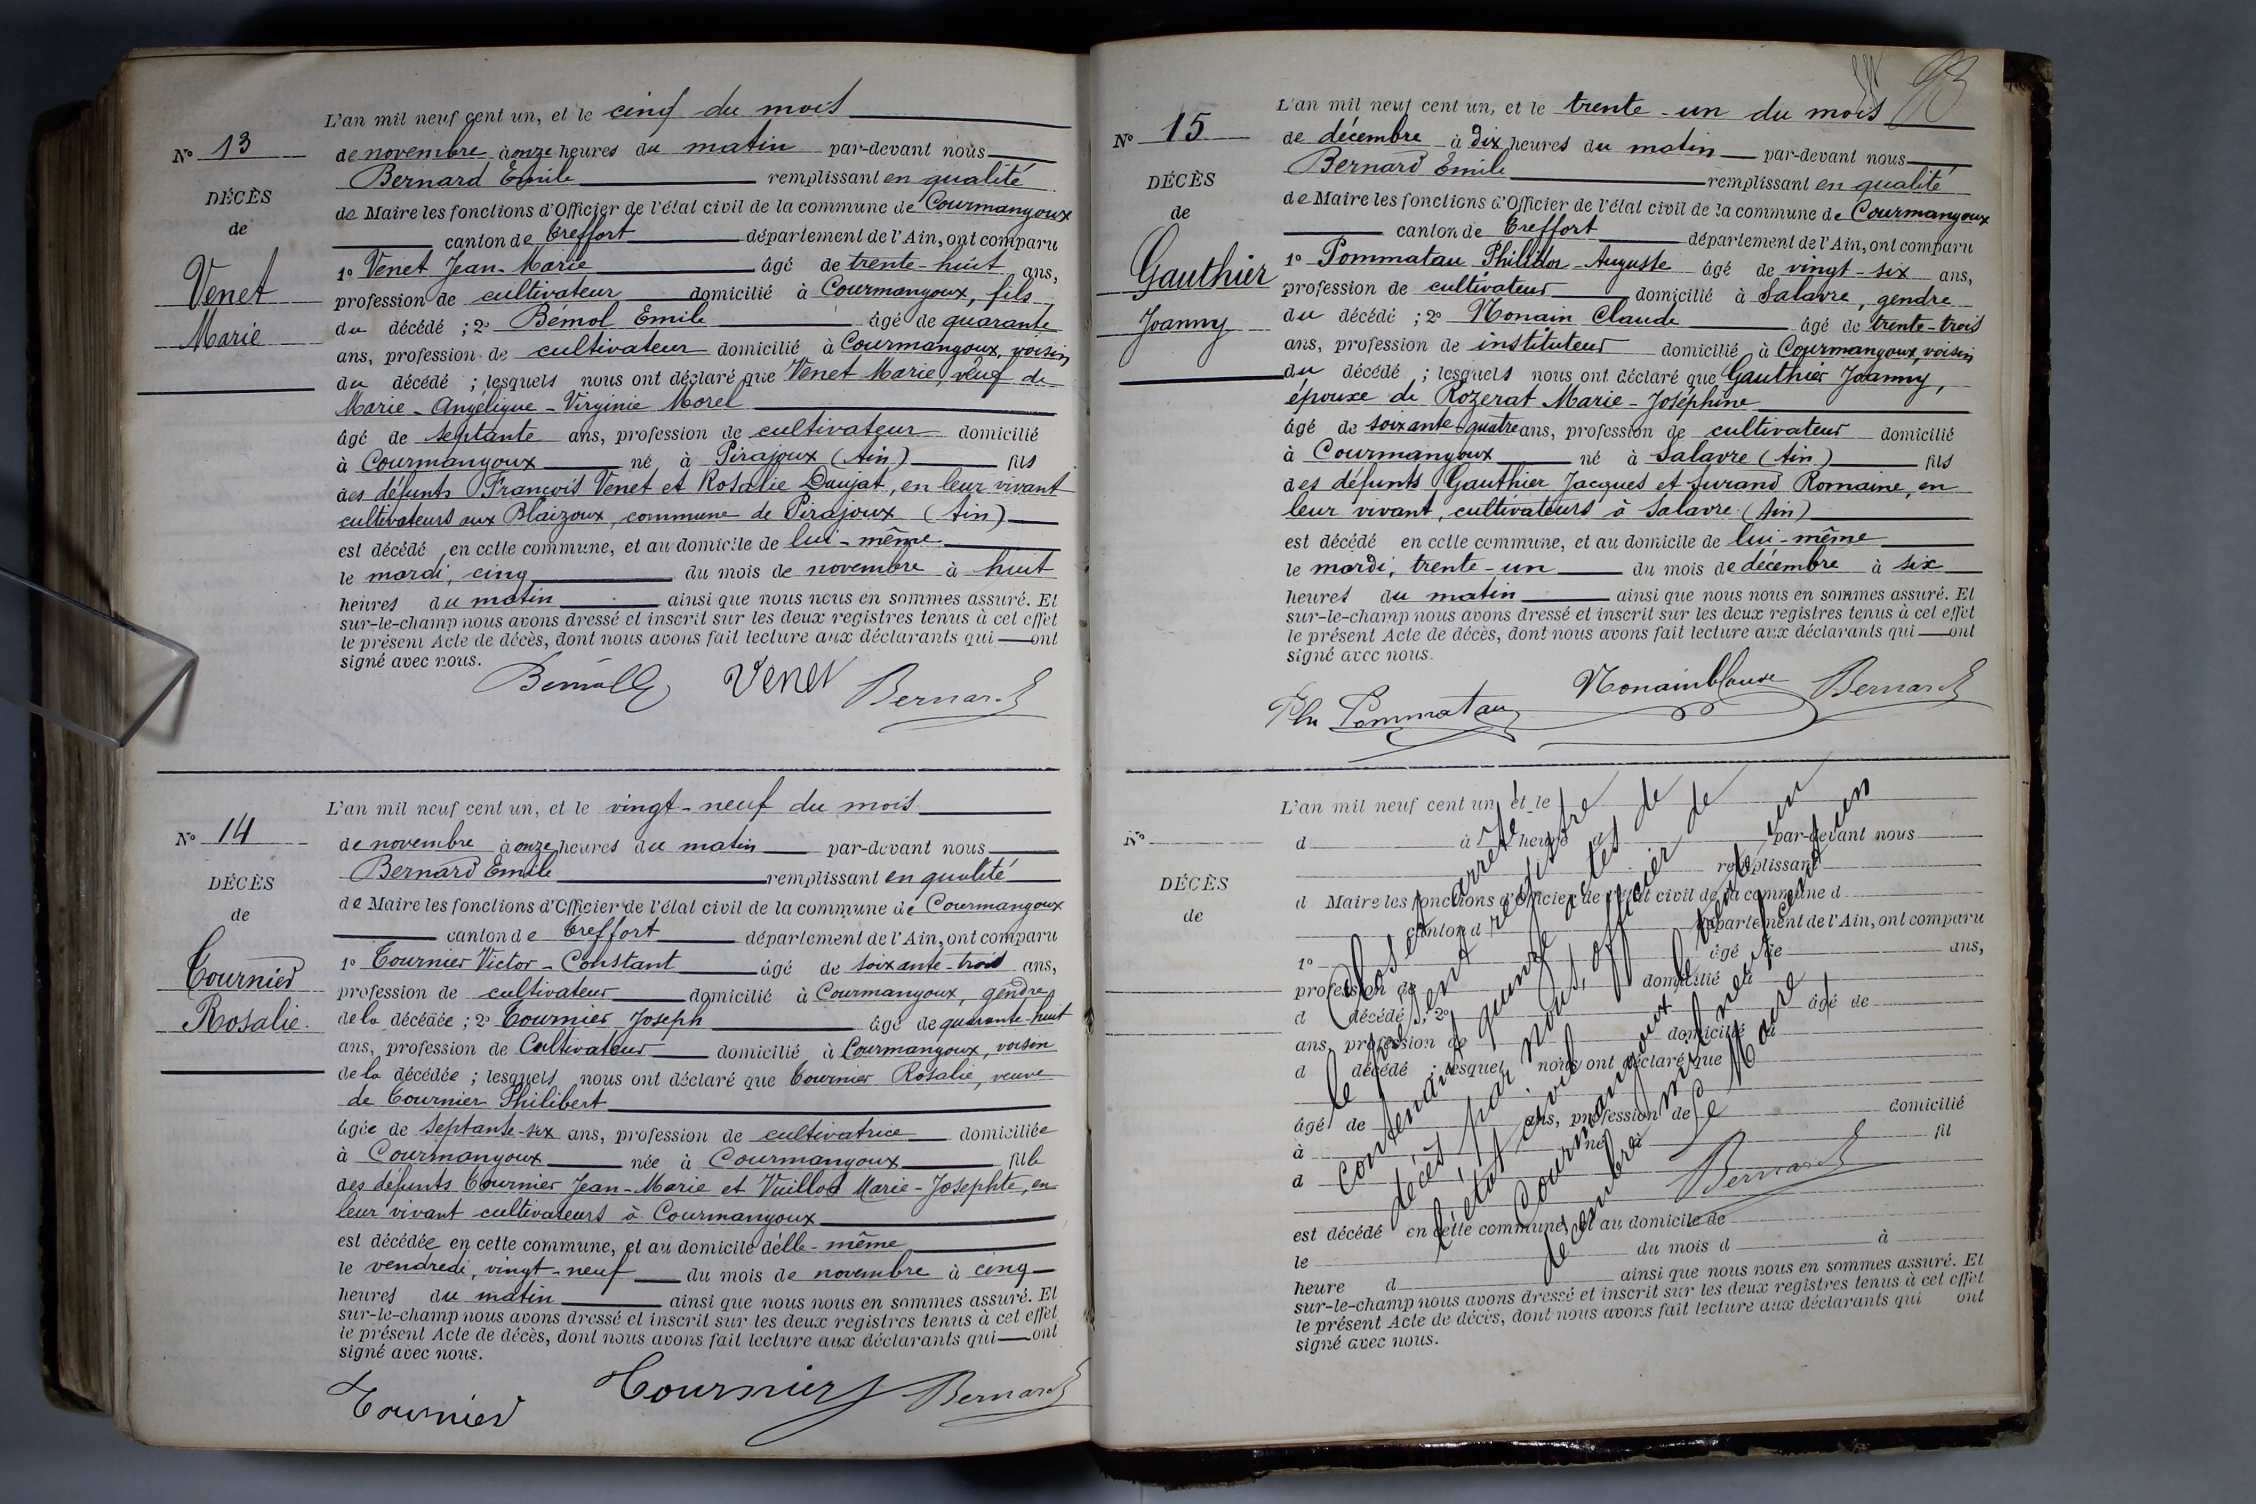 L'an mil neuf cent un, et le cinq du mois
N° 13
de novembre à onze heures du matin par-devant nous
Bernard Emile remplissant en qualité
DÉCÈS
de Maire les fonctions d'Officier de l'état civil de la commune de Courmangoux
de
canton de Treffort département de l'Ain, ont comparu
Venet
1° Venet Jean-Marie âgé de trente-huit ans,
profession de cultivateur domicilié à Courmangoux, fils
Marie
du décédé ; 2° Bémol Emile âgé de quarante
ans, profession de cultivateur domicilié à Courmangoux, voisin
du décédé ; lesquels nous ont déclaré que Venet Marie, veuf de
Marie-Angélique-Virginie Morel
âgé de septante ans, profession de cultivateur domicilié
à Courmangoux né à Pirajoux (Ain) fils
des défunts François Venet et Rosalie Daujat, en leur vivant
cultivateurs aux Blaizoux, commune de Pirajoux (Ain)
est décédé en cette commune, et au domicile de lui-même
le mardi, cinq du mois de novembre à huit
heures du matin ainsi que nous nous en sommes assuré. Et
sur-le-champ nous avons dressé et inscrit sur les deux registres tenus à cet effet
le présent Acte de décès, dont nous avons fait lecture aux déclarants qui ont
signé avec nous.
Venet Bernard
L'an mil neuf cent un, et le vingt-neuf du mois
N° 14
de novembre à onze heures du matin par-devant nous
Bernard Emile remplissant en qualité
DÉCÈS
de Maire les fonctions d'Officier de l'état civil de la commune de Courmangoux
de
canton de Treffort département de l'Ain, ont comparu
Tournier
1° Tournier Victor-Constant âgé de soixante-trois ans,
profession de cultivateur domicilié à Courmangoux, gendre
Rosalie
de la décédée ; 2° Tournier Joseph âgé de quarante-huit
ans, profession de Cultivateur domicilié à Courmangoux, voisin
de la décédée ; lesquels nous ont déclaré que Tournier Rosalie, veuve
de Tournier Philibert
âgée de septante-six ans, profession de cultivatrice domiciliée
à Courmangoux née à Courmangoux fille
des défunts Tournier Jean-Marie et Vuillod Marie-Josephte, en
leur vivant cultivateurs à Courmangoux
est décédée en cette commune, et au domicile d'elle-même
le vendredi, vingt-neuf du mois de novembre à cinq
heures du matin ainsi que nous nous en sommes assuré. Et
sur-le-champ nous avons dressé et inscrit sur les deux registres tenus à cet effet
le présent Acte de décès, dont nous avons fait lecture aux déclarants qui ont
signé avec nous.
Tournier Tournier Bernard
93
L'an mil neuf cent un, et le trente-un du mois
N° 15
de décembre à dix heures du matin par-devant nous
Bernard Emile remplissant en qualité
DÉCÈS
de Maire les fonctions d'Officier de l'état civil de la commune de Courmangoux
de
canton de Treffort département de l'Ain, ont comparu
Gauthier
1° Pommatau Philidor-Auguste âgé de vingt-six ans,
profession de cultivateur domicilié à Salavre, gendre
Joanny
du décédé ; 2° Monain Claude âgé de trente-trois
ans, profession de instituteur domicilié à Courmangoux, voisin
du décédé ; lesquels nous ont déclaré que Gauthier Joanny,
épouxe de Rozerat Marie-Joséphine
âgé de soixante-quatre ans, profession de cultivateur domicilié
à Courmangoux né à Salavre (Ain) fils
des défunts Gauthier Jacques et Jurand Romaine, en
leur vivant, cultivateurs à Salavre (Ain)
est décédé en cette commune, et au domicile de lui-même
le mardi, trente-un du mois de décembre à six
heures du matin ainsi que nous nous en sommes assuré. Et
sur-le-champ nous avons dressé et inscrit sur les deux registres tenus à cet effet
le présent Acte de décès, dont nous avons fait lecture aux déclarants qui ont
signé avec nous.
Phi Pommatau Monain Claude Bernard
L'an mil neuf cent un, et le
N°
d à heure par-devant nous
remplissant
DÉCÈS
d Maire les fonctions d'Officier de l'état civil de la commune d
de
canton d département de l'Ain, ont comparu
1° âgé de ans,
profession de domicilié à
d décédé ; 2° âgé de
ans, profession de domicilié à
d décédé ; lesquel nous ont déclaré que
âgé de ans, profession de domicilié
à né à fil
d
est décédé en cette commune, et au domicile de
le du mois d à
heure d ainsi que nous nous en sommes assuré. Et
sur-le-champ nous avons dressé et inscrit sur les deux registres tenus à cet effet
le présent Acte de décès, dont nous avons fait lecture aux déclarants qui ont
signé avec nous.
Clos et arrêté
le présent registre
contenant quinze actes de
décès par nous, officier de
l'état civil
Courmangoux le trente un
décembre mil neuf cent un
Le Maire
Bernard